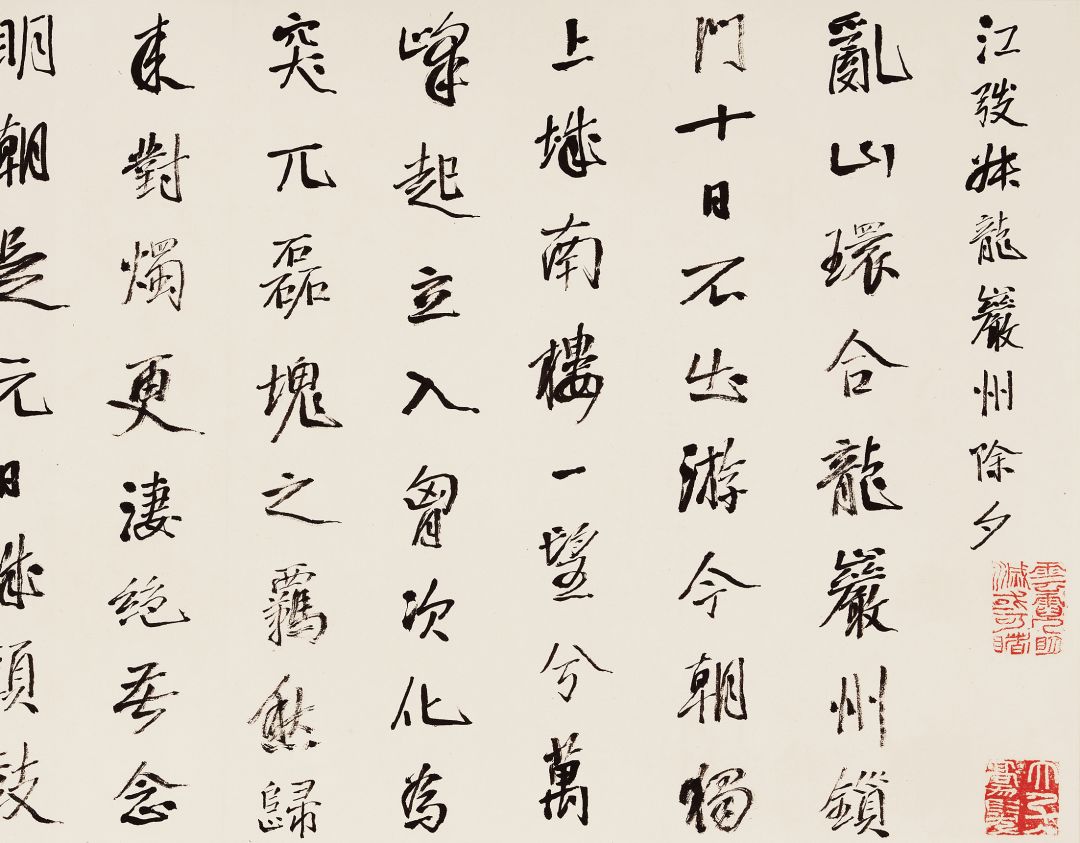 江弢叔龍巖州除夕
亂山環合龍巖州鎖
門十日不出游今朝獨
上城南樓一望兮萬
峰起立入胷次化為
突兀磊塊之羈愁歸
來對燭更淒絕念
明朝是元日城頭鼓